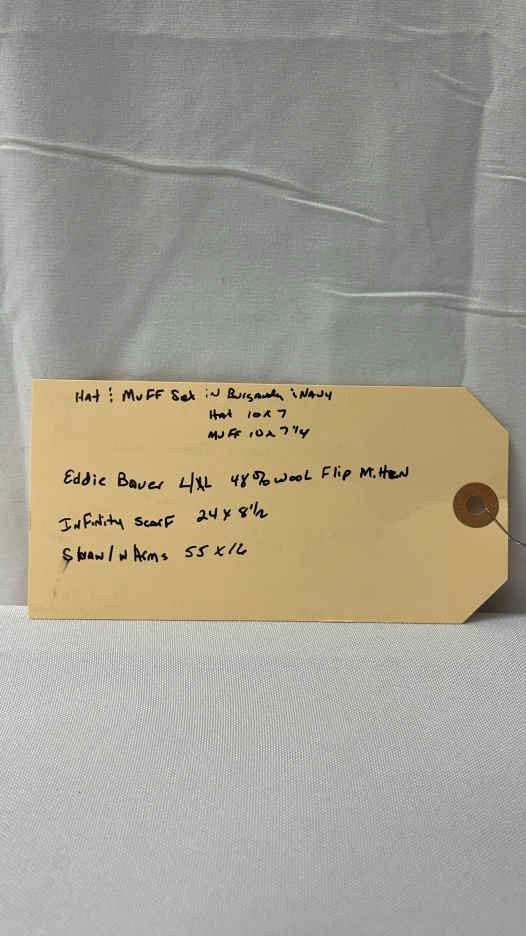 Hat & Muff Set in Burgandy & Navy
Hat 10x7
Muff 10x7 1/4
Eddie Bauer L/XL 48% Wool Flip Mitten
Infinity Scarf 24x8 1/2
Shawl w Arms 55x16